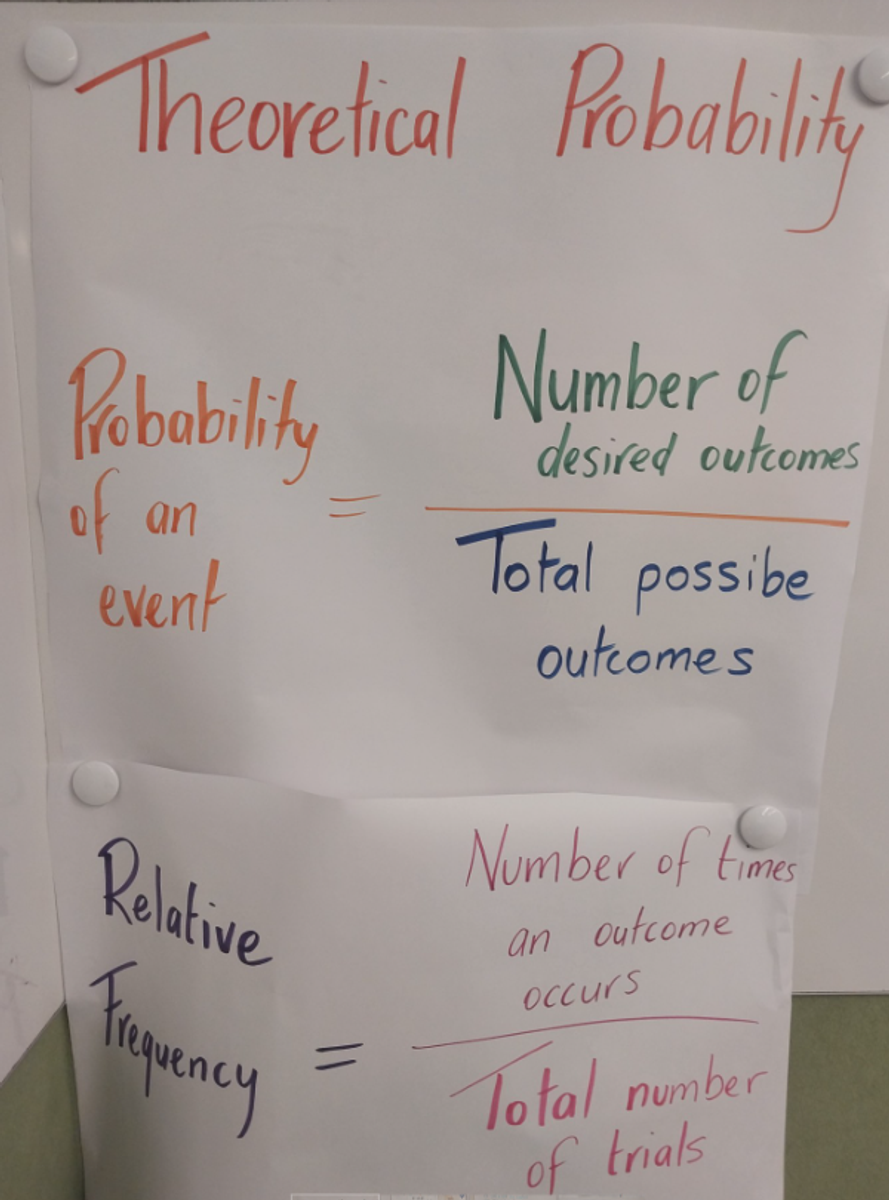 Theoretical Probability
Probability
of an
event
=
Number of
desired outcomes
Total possibe
outcomes
Relative
Frequency
=
Number of times
an outcome
occurs
Total number
of trials